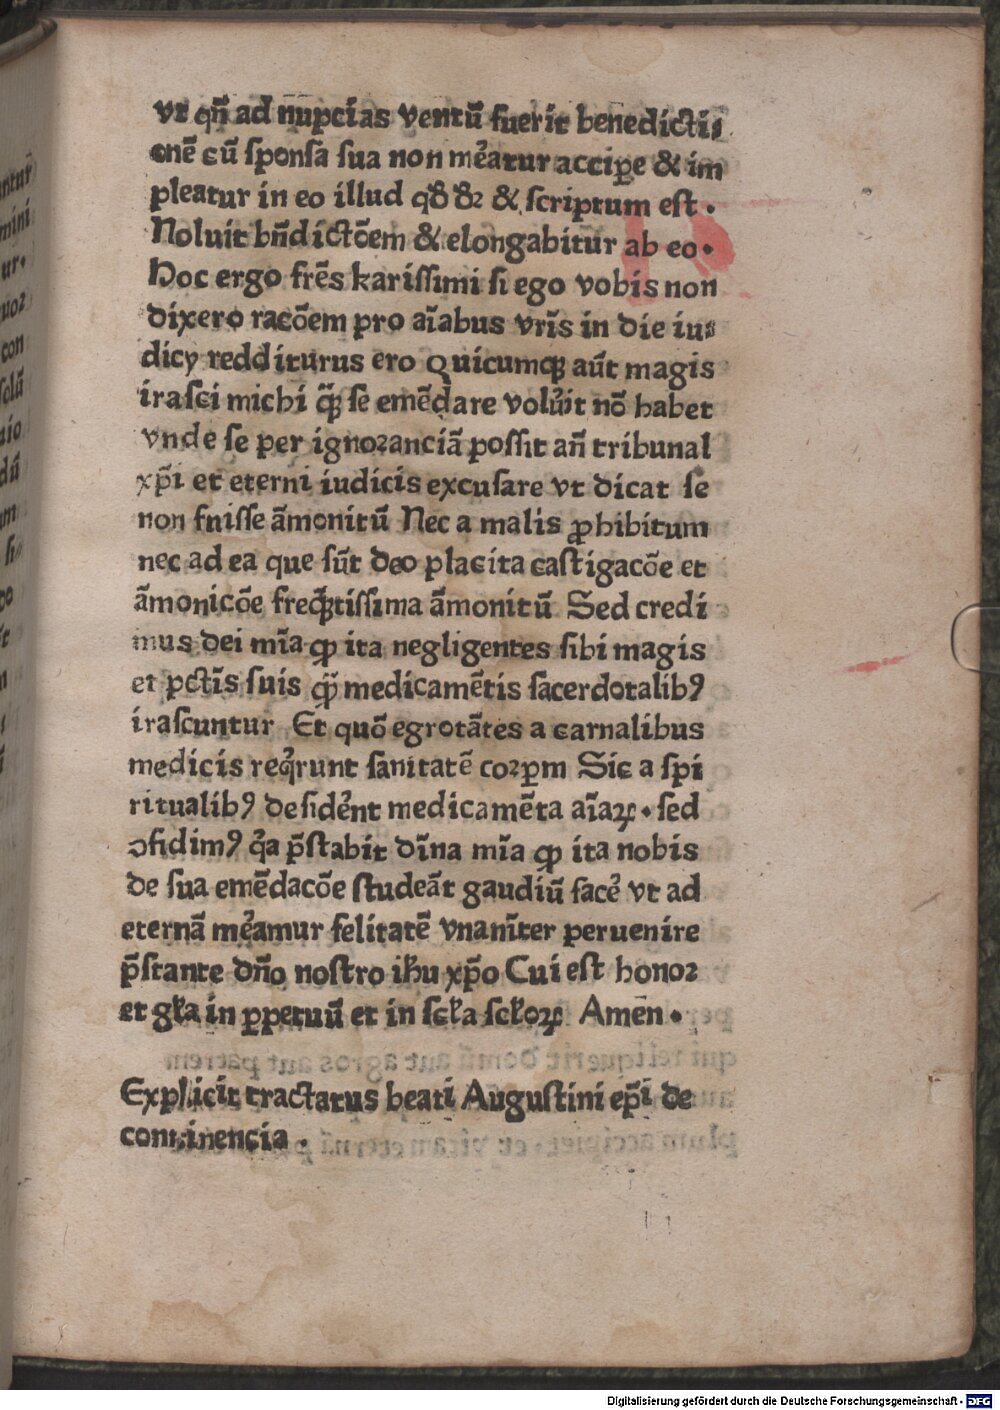 vt qñ ad nupcias ventū fuerit benedicti⸗
onē cū sponsa sua non mẽatur accipe & im
pleatur in eo illud qđ đꝛ & scriptum est .
Noluit bñdictōem & elongabitur ab eo.
Hoc ergo frēs karissimi si ego vobis non
dixero racōem pro aīabus vrīs in die iu⸗
dicy redditurus ero Quicumqꝫ aūt magis
irasci michi q̄ꝫ se emēdare voluit nō habet
vnde se per ignoꝛanciā possit añ tribunal
xp̄i et eterni iudicis excusare vt dicat se
non fnisse āmonitū Nec a malis ꝓhibitum
nec ad ea que sūt deo placita castigacōe et
āmonicōe freqꝫtissima āmonitū Sed credi
mus dei mīa ꝙ ita negligentes sibi magis
et pctīs suis q̄ꝫ medicamētis sacerdotalibꝰ
irascuntur Et quō egrotātes a carnalibus
medicis reqͥrunt sanitatē coꝛpm Sic a spi
ritualibꝰ desidẽnt medicamēta aīaꝝ . sed
ↄfidimꝰ qͥa p̄stabit dīna mīa ꝙ ita nobis
de sua emēdacōe studeāt gaudiū facẽ vt ad
eternā mẽamur felitatē vnanīter peruenire
p̄stante dño nostro ihu xp̄o Cui est honoꝛ
et gła in ꝑpetuū et in scła scłoꝝ Amen .
Explicit tractatus beati Augustini ep̄i de
continencia .
Digitalisierung gefördert durch die Deutsche Forschungsgemeinschaft - DFG